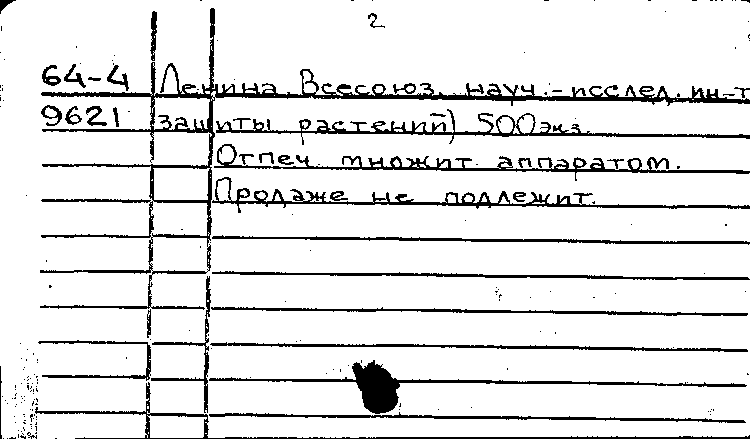 2
64-4 Ленина. Всесоюз. науч.-исслед. ин-т
9621 защиты растений) 500 экз.
Отпеч. множит. аппаратом.
Продаже не подлежит.